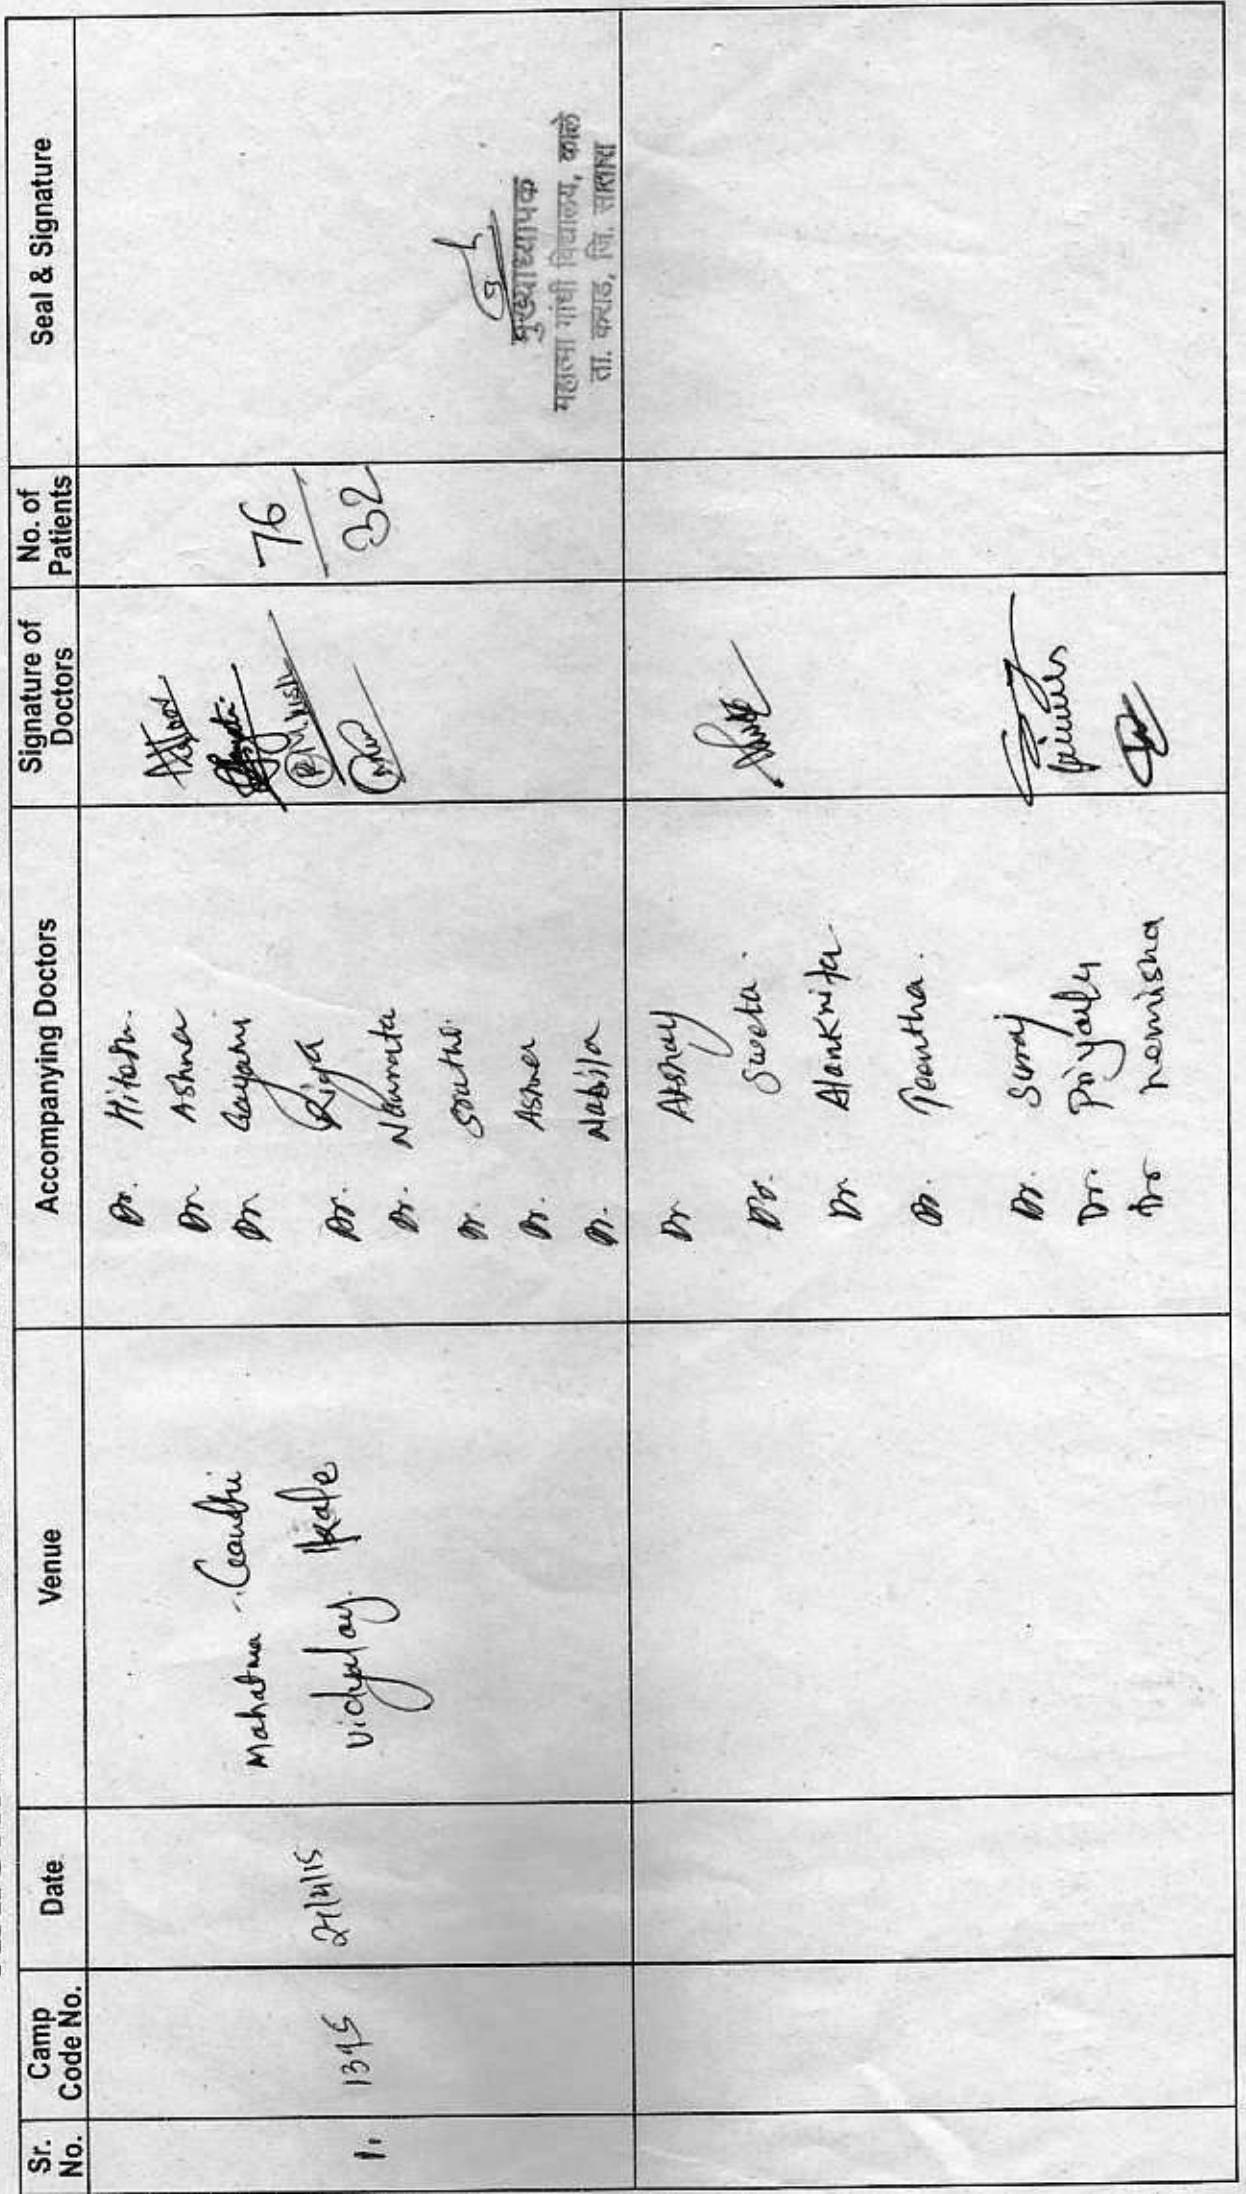 Sr. No.
Camp Code No.
Date
Venue
Accompanying Doctors
Signature of Doctors
No. of Patients
Seal & Signature
1.
1395
21/4/15
Mahatma Gandhi
Vidyalay Kale
Dr. Hitesh.
Dr Ashna
Dr Gayatri
Dr. Riya
Dr. Namrata
Dr.
Dr. Ashna
Dr. Nabila
76
32
मुख्याध्यापक
महात्मा गांधी विद्यालय, काले
ता. कराड, जि. सातारा
Dr Abhay
Dr. Sweta.
Dr Alankrita
Dr.
Dr. Suraj
Dr. Priyanka
Dr nemisha